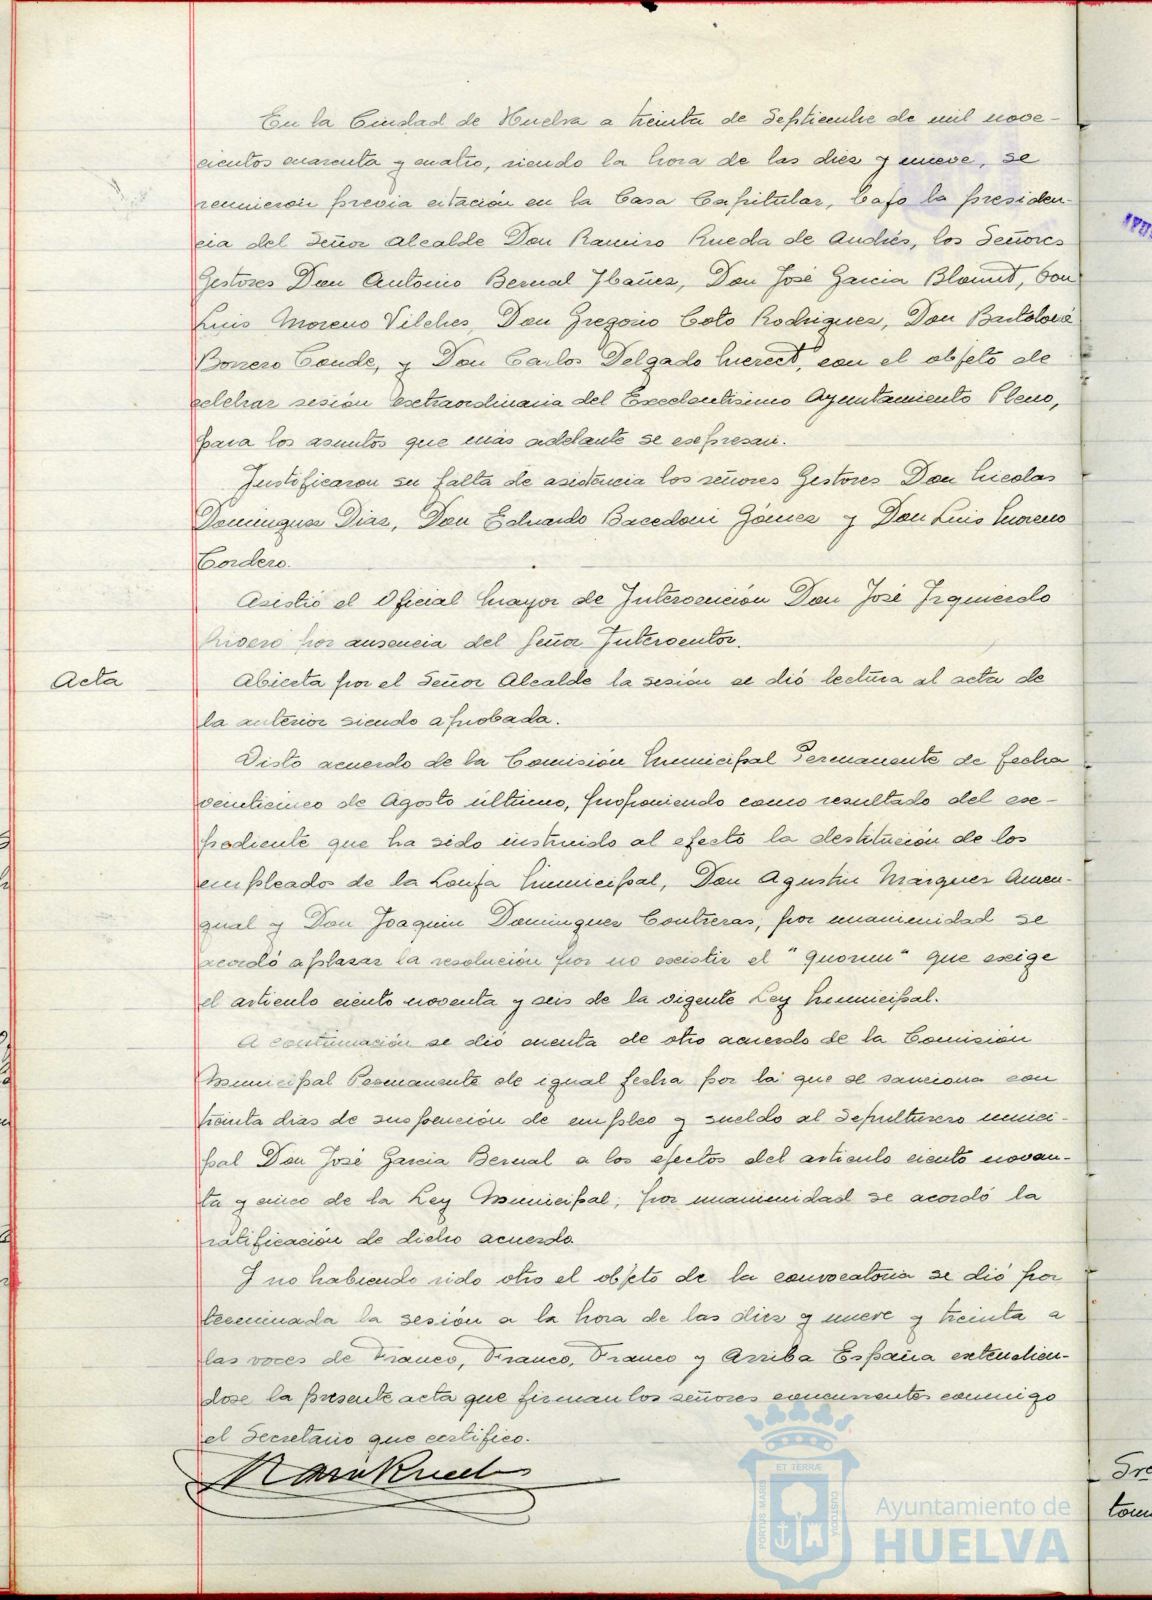 En la Ciudad de Huelva a treinta de Septiembre de mil nove-
cientos cuarenta y cuatro, siendo la hora de las diez y nueve, se
reunieron previa citación en la Casa Capitular, bajo la presiden-
cia del Señor Alcalde Don Ramiro Rueda de Andrés, los Señores
Gestores Don Antonio Bernal Ybañez, Don José Garcia Blount, Don
Luis Moreno Vilches, Don Gregorio Coto Rodriguez, Don Bartolomé
Borrero Conde, y Don Carlos Delgado con el objeto de
celebrar sesión extraordinaria del Excelentisimo Ayuntamiento Pleno,
para los asuntos que más adelante se expresan.
Justificaron su falta de asistencia los señores Gestores Don Nicolas
Dominguez Diaz, Don Eduardo Bacedoni Gómez y Don Luis Moreno
Cordero.
Asistió el Oficial Mayor de Intervención Don José Izquierdo
Rivero por ausencia del Señor Interventor.
Acta
Abierta por el Señor Alcalde la sesión se dió lectura al acta de
la anterior siendo aprobada.
Visto acuerdo de la Comisión Municipal Permanente de fecha
veinticinco de Agosto último, proponiendo como resultado del ex-
pediente que ha sido instruido al efecto la destitución de los
empleados de la Lonja Municipal, Don Agustin Márquez Amen-
gual y Don Joaquin Dominguez Contreras, por unanimidad se
acordó aplazar la resolución por no existir el "quorum" que exige
el articulo ciento noventa y seis de la vigente Ley Municipal.
A continuación se dió cuenta de otro acuerdo de la Comisión
Municipal Permanente de igual fecha por la que se sanciona con
treinta dias de suspención de empleo y sueldo al Sepulturero munici-
pal Don José Garcia Bernal a los efectos del articulo ciento noven-
ta y cinco de la Ley Municipal, por unanimidad se acordó la
ratificación de dicho acuerdo.
Y no habiendo sido otro el objeto de la convocatoria se dió por
terminada la sesión a la hora de las diez y nueve y treinta a
las voces de Franco, Franco, Franco y Arriba España extendien-
dose la presente acta que firman los señores concurrentes conmigo
el Secretario que certifico.
ET TERRÆ
PORTUS MARIS
CUSTODIA
Ayuntamiento de
HUELVA